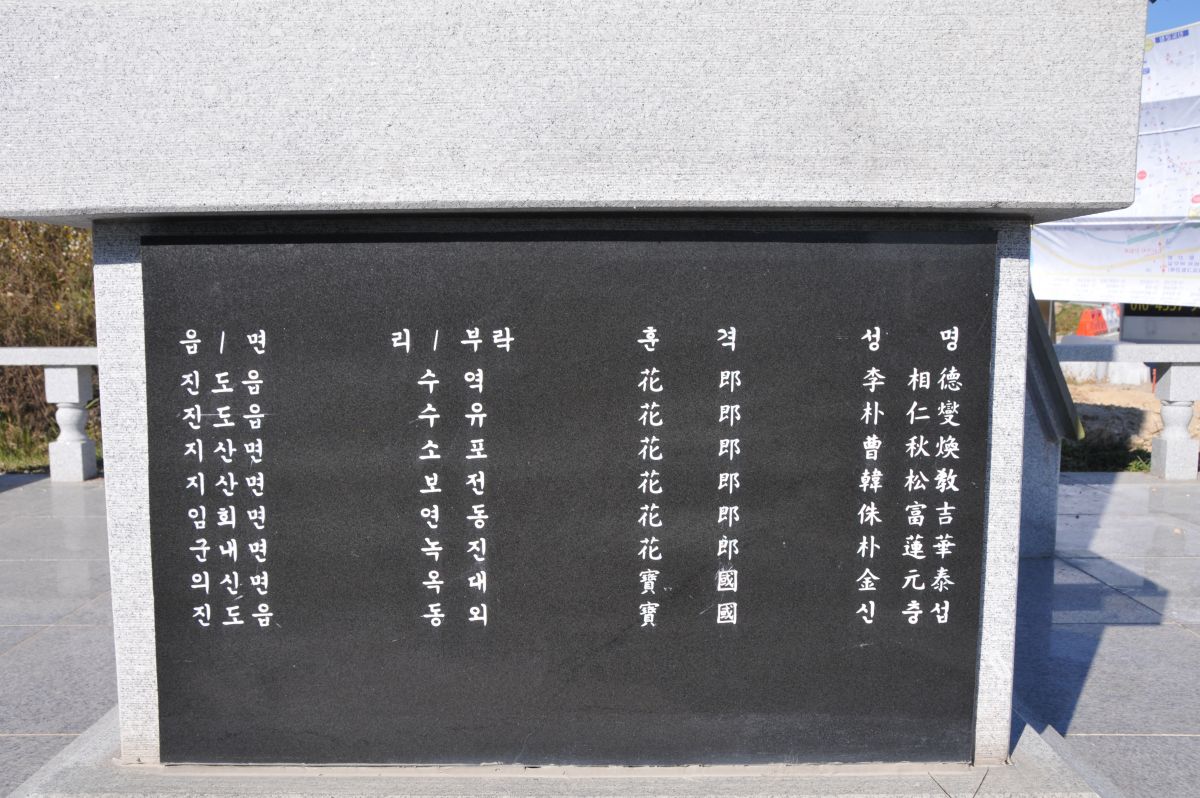 읍 / 면 리 / 부락 훈 격 성 명
진도읍 수역 花郎 李相德
진도읍 수유 花郎 朴仁燮
지산면 소포 花郎 曹秋煥
지산면 보전 花郎 韓松敎
임회면 연동 花郎 侏富吉
군내면 녹진 花郎 朴蓮華
의신면 옥대 寶國 金元泰
진도읍 동외 寶國 신충섭